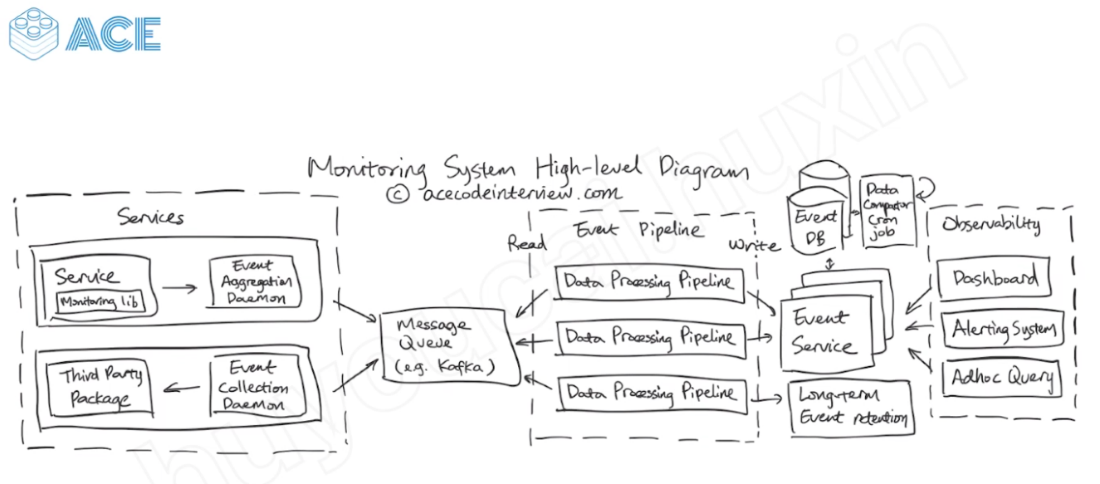 ACE
Monitoring System High-level Diagram
© acecodeinterview.com
Services
Service
Monitoring lib
Event
Aggregation
Daemon
Third Party
Package
Event
Collection
Daemon
Message
Queue
(e.g. Kafka)
Read
Event Pipeline
Write
Data Processing Pipeline
Data Processing Pipeline
Data Processing Pipeline
Event
DB
Data
Compactor
Cron
job
Event
Service
Long-term
Event retention
Observability
Dashboard
Alerting System
Adhoc Query